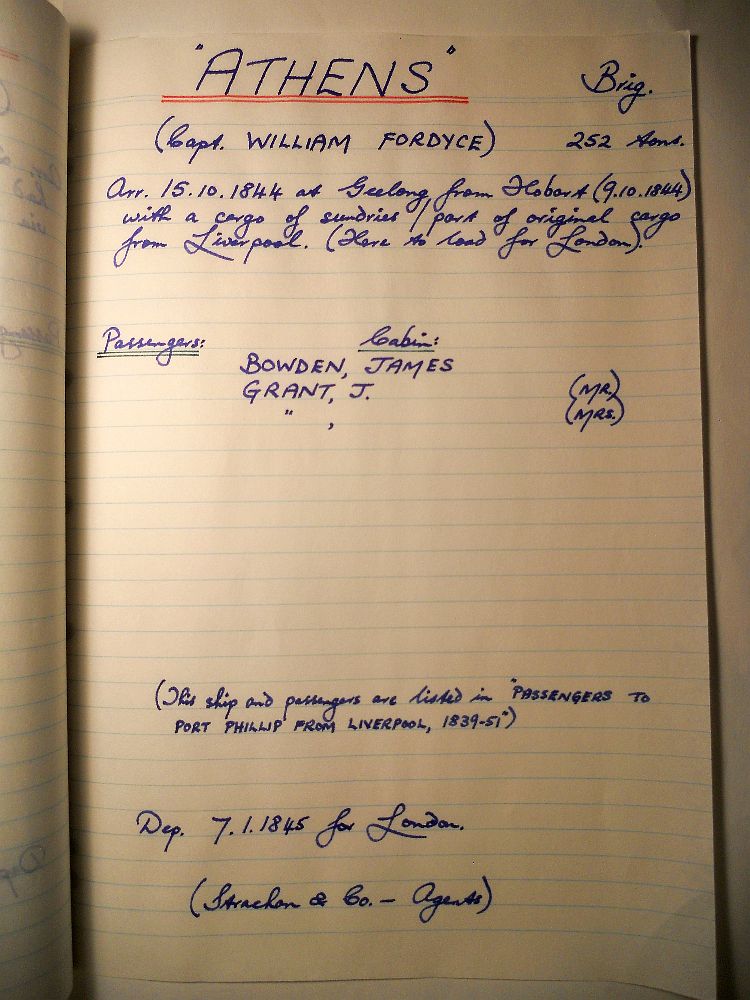 "ATHENS" Brig.
(Capt. WILLIAM FORDYCE) 252 tons.
Arr. 15.10.1844 at Geelong from Hobart (9.10.1844)
with a cargo of sundries / part of original cargo
from Liverpool. (Here to load for London).
Passengers: Cabin:
BOWDEN, JAMES
GRANT, J. (MR.)
" , (MRS.)
(This ship and passengers are listed in "PASSENGERS TO
PORT PHILLIP FROM LIVERPOOL, 1839-51")
Dep. 7.1.1845 for London.
(Strachan & Co. — Agents)